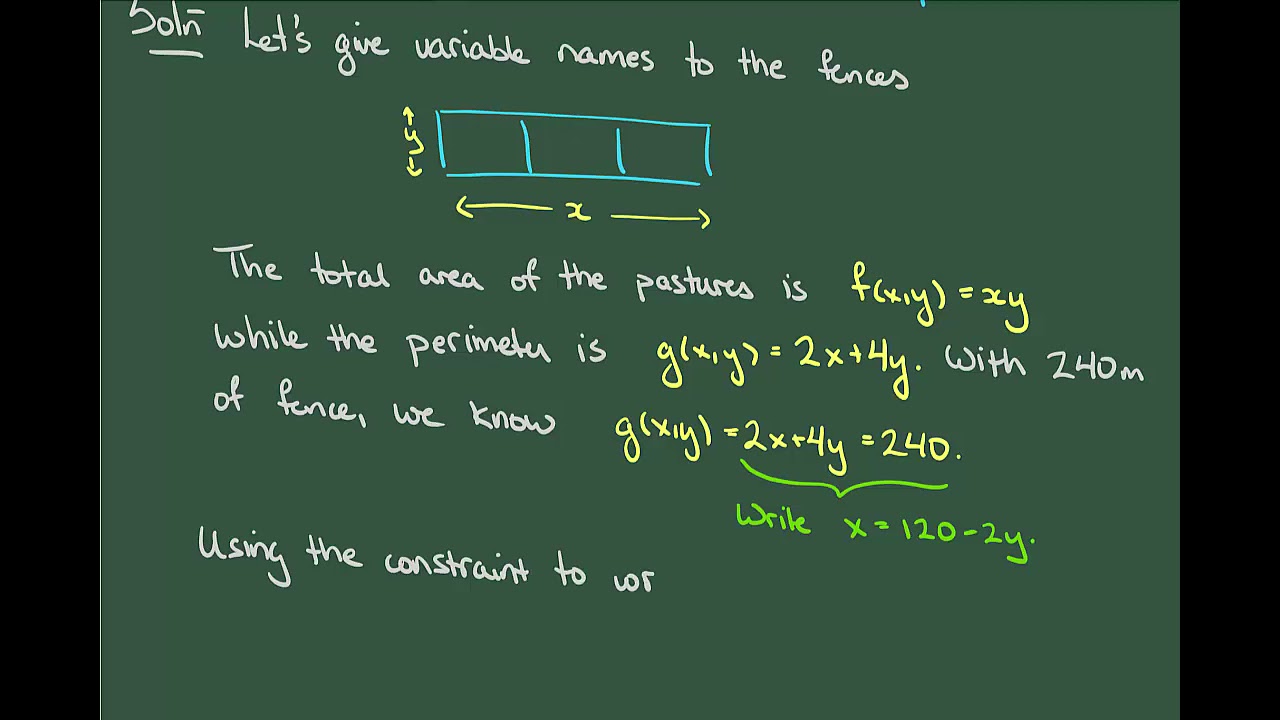 Soln Let's give variable names to the fences
y
x
The total area of the pastures is f(x,y) = xy
while the perimeter is g(x,y) = 2x+4y. With 240m
of fence, we know g(x,y) = 2x+4y = 240.
Write x = 120-2y.
Using the constraint to wr